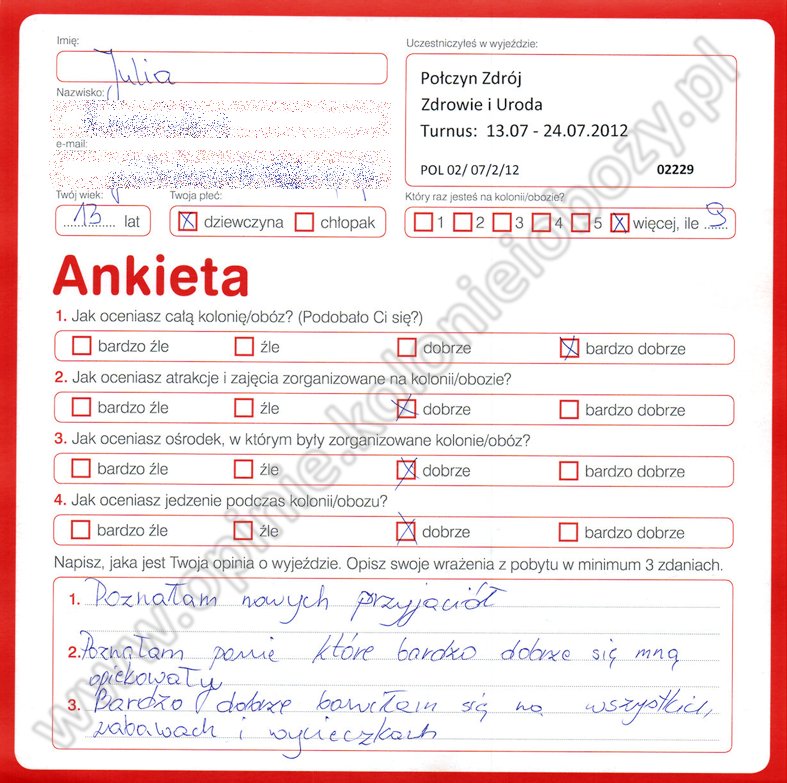 Imię:
Julia
Nazwisko:
e-mail:
Twój wiek:
13 lat
Twoja płeć:
dziewczyna chłopak
Uczestniczyłeś w wyjeździe:
Połczyn Zdrój
Zdrowie i Uroda
Turnus: 13.07 - 24.07.2012
POL 02/ 07/2/12 02229
Który raz jesteś na kolonii/obozie?
1 2 3 4 5 więcej, ile 9
Ankieta
1. Jak oceniasz całą kolonię/obóz? (Podobało Ci się?)
bardzo źle źle dobrze bardzo dobrze
2. Jak oceniasz atrakcje i zajęcia zorganizowane na kolonii/obozie?
bardzo źle źle dobrze bardzo dobrze
3. Jak oceniasz ośrodek, w którym były zorganizowane kolonie/obóz?
bardzo źle źle dobrze bardzo dobrze
4. Jak oceniasz jedzenie podczas kolonii/obozu?
bardzo źle źle dobrze bardzo dobrze
Napisz, jaka jest Twoja opinia o wyjeździe. Opisz swoje wrażenia z pobytu w minimum 3 zdaniach.
1. Poznałam nowych przyjaciół
2. Poznałam panie które bardzo dobrze się mną
opiekowały
3. Bardzo dobrze bawiłam się na wszystkich
zabawach i wycieczkach
www.opinie.kolonieiobozy.pl